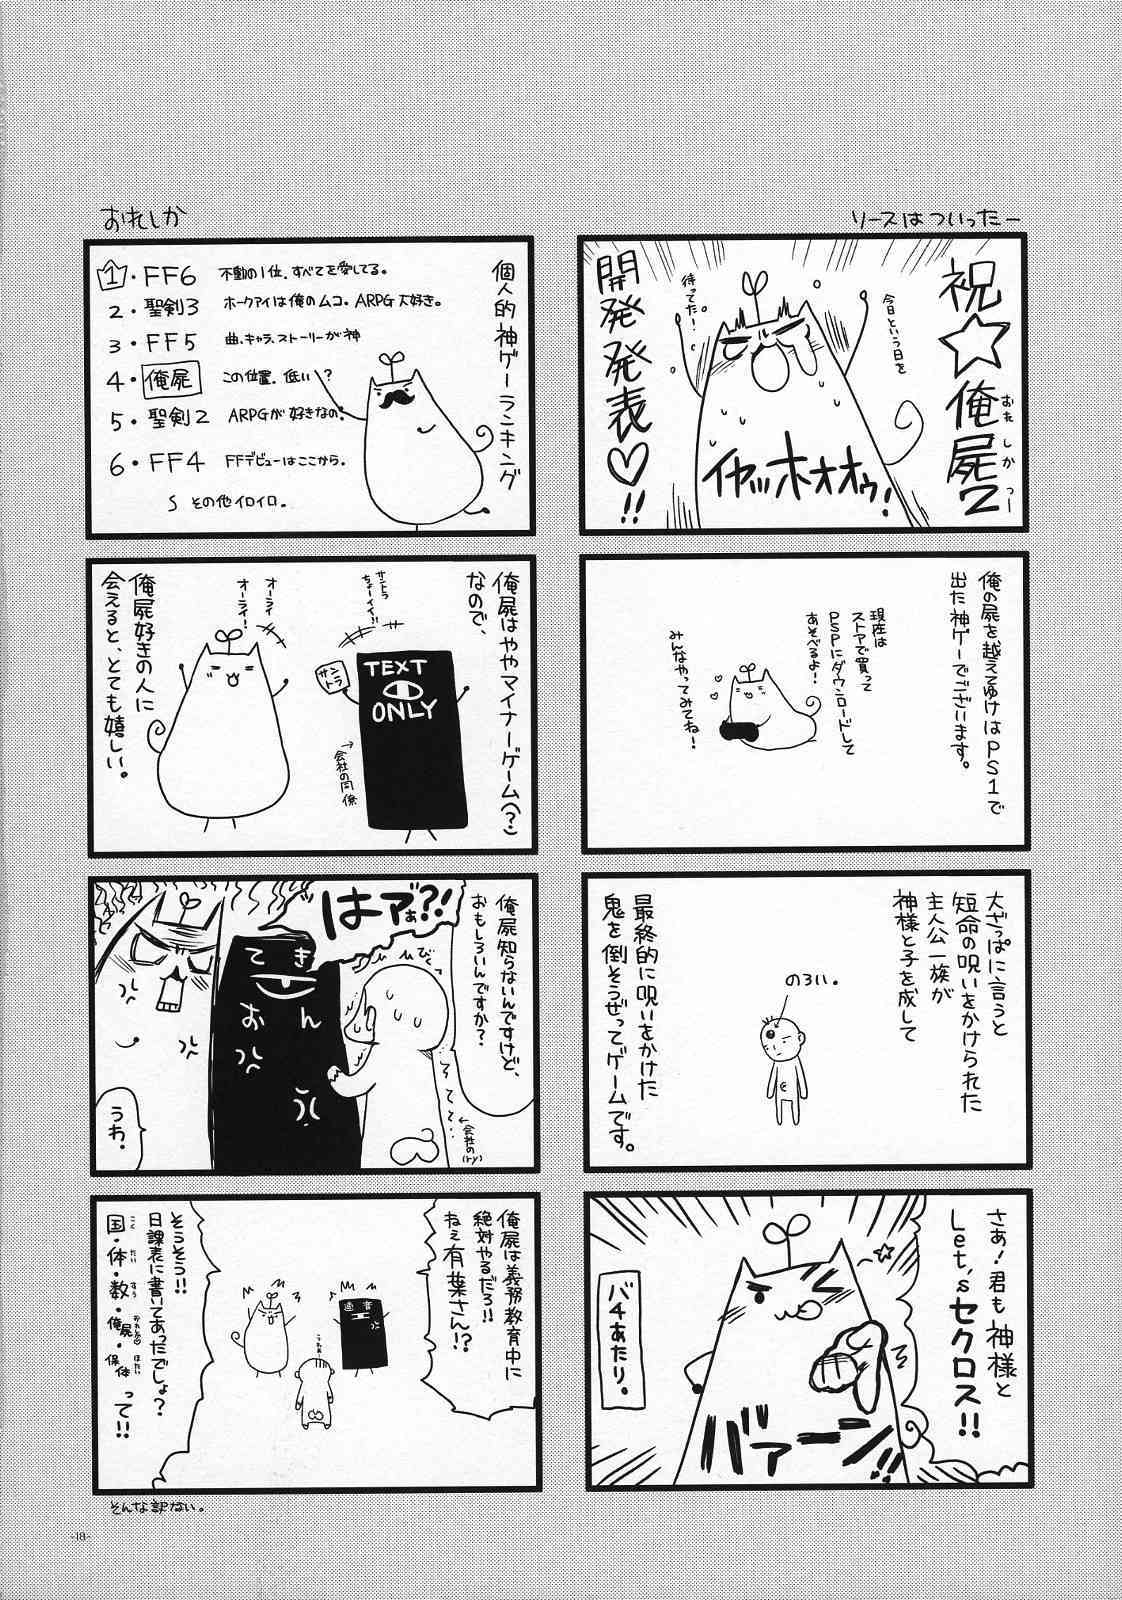 リースはついったー
祝☆俺屍2
おれしかつー
開発発表♡!!
今日という日を
待ってた!
イヤッホオオゥ!
俺の屍を越えてゆけはPS1で
出た神ゲーでございます。
現在は
ストアで買って
PSPにダウンロードして
あそべるよ!
みんなやってみてね!
大ざっぱに言うと
短命の呪いをかけられた
主人公一族が
神様と子を成して
のろい。
最終的に呪いをかけた
鬼を倒そうぜってゲームです。
さぁ!君も神様と
Let'sセクロス!!
バァーン!!
バチあたり。
おれしか
個人的神ゲーランキング
1・FF6 不動の1位、すべてを愛してる。
2・聖剣3 ホークアイは俺のムコ。ARPG大好き。
3・FF5 曲、キャラ、ストーリーが神
4・俺屍 この位置、低い?
5・聖剣2 ARPGが好きなの。
6・FF4 FFデビューはここから。
S その他イロイロ。
俺屍はややマイナーゲーム(?)
なので、
サントラ
ちょーイイ!!
サントラ
TEXT
ONLY
→会社の同僚
オーライ
オーライ!
俺屍好きの人に
会えると、とても嬉しい。
俺屍知らないんですけど、
おもしろいんですか?
はァぁ?!
びびっ
てきおん
←会社の(ry)
うわ。
俺屍は義務教育中に
絶対やるだろ!!
ねぇ有葉さん!?
適音
そうそう!!
日課表に書いてあったでしょ?
国・体・数・俺屍・保体って!!
こく たい すう おれしか ほたい
そんな訳ない。
-18-